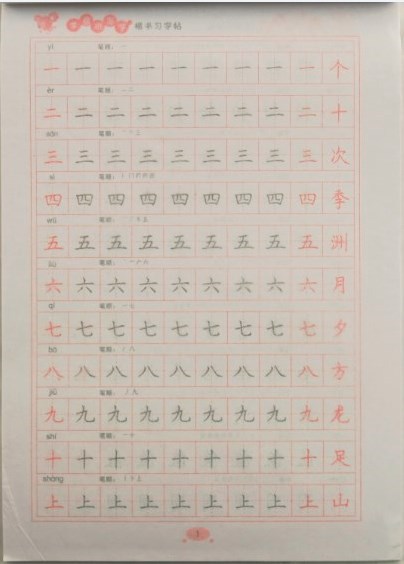 习字帖
yī 笔顺: 一
一 一 一 一 一 一 一 一 一 个
èr 笔顺: 一 二
二 二 二 二 二 二 二 二 二 十
sān 笔顺: 一 二 三
三 三 三 三 三 三 三 三 三 次
sì 笔顺:
四 四 四 四 四 四 四 四 四 季
wǔ 笔顺:
五 五 五 五 五 五 五 五 五 洲
liù 笔顺:
六 六 六 六 六 六 六 六 六 月
qī 笔顺: 一 七
七 七 七 七 七 七 七 七 七 夕
bā 笔顺: 丿 八
八 八 八 八 八 八 八 八 八 方
jiǔ 笔顺: 丿 九
九 九 九 九 九 九 九 九 九 龙
shí 笔顺: 一 十
十 十 十 十 十 十 十 十 十 足
shàng 笔顺:
上 上 上 上 上 上 上 上 上 山
1